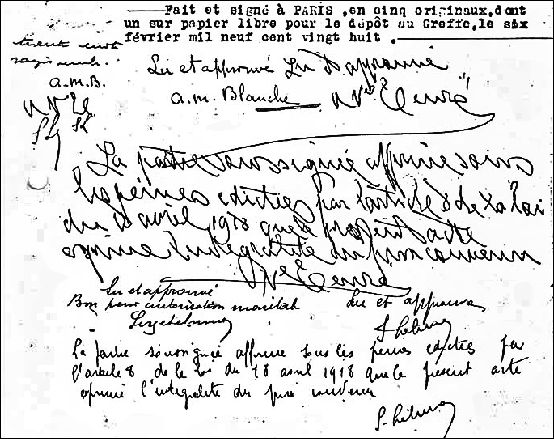 Fait et signé à PARIS ,en cinq originaux,dont
un sur papier libre pour le dépôt au Greffe,le six
février mil neuf cent vingt huit.
a.m.B.
Lu et approuvé Lu et approuvé
a.m. Blanche
La partie soussignée affirme sous
les peines édictées par l'article 8 de la loi
du 18 avril 1918 que le présent acte
exprime l'intégralité du prix convenu
Lu et approuvé
Bon pour autorisation maritale
Lu et approuvé
La partie soussignée affirme sous les peines édictées par
l'article 8 de la loi du 18 avril 1918 que le présent acte
exprime l'intégralité du prix convenu